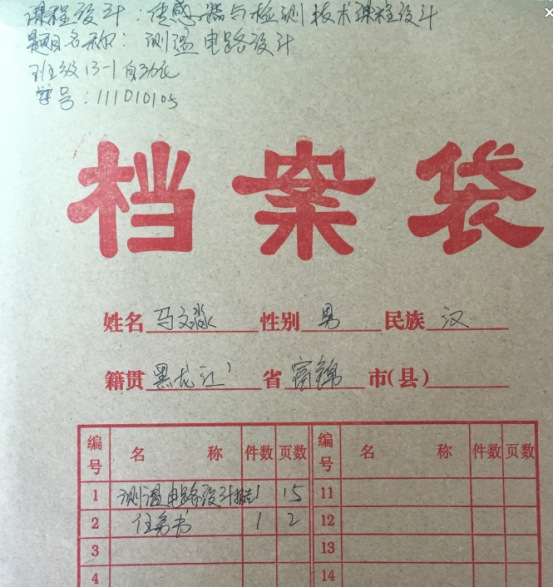 课程设计：传感器与检测技术课程设计
题目名称：测温电路设计
班级 13-1 自动化
学号：111010105
档案袋
姓名 马文淼 性别 男 民族 汉
籍贯 黑龙江 省 富锦 市(县)
编号 名称 件数 页数 编号 名称 件数 页数
1 测温电路设计报告 1 15 11
2 任务书 1 2 12
3 13
4 14